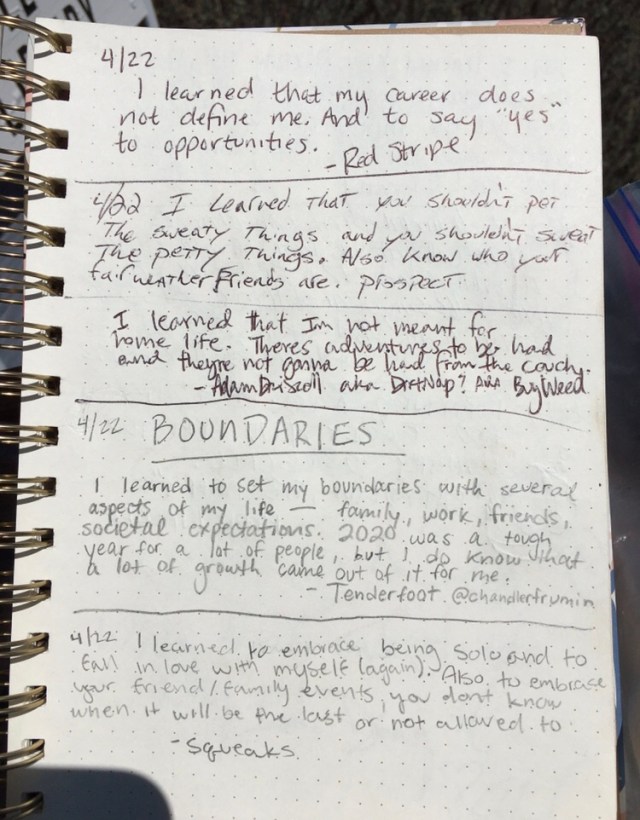 4/22
I learned that my career does
not define me. And to say "yes"
to opportunities.
- Red Stripe
4/22 I Learned That you shouldn't pet
The sweaty Things and you shouldn't sweat
The petty Things. Also know who your
fairweather friends are. PissPoct
I learned that Im not meant for
home life. Theres adventures to be had
and theyre not gonna be had from the couch.
- Adam Driscoll aka DirtNap? AKA BugWeed
4/22 BOUNDARIES
I learned to set my boundaries with several
aspects of my life — family, work, friends,
societal expectations. 2020 was a tough
year for a lot of people, but I do know that
a lot of growth came out of it for me.
- Tenderfoot @chandlerfrumin
4/22 I learned to embrace being solo and to
fall in love with myself (again). Also to embrase
your friend/family events, you dont know
when it will be the last or not allowed to
- Squeaks